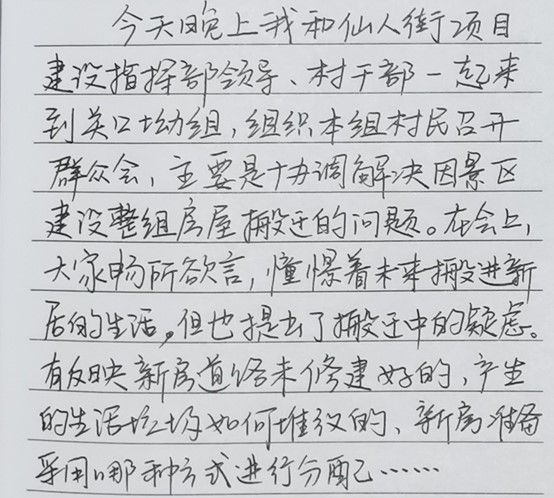 今天晚上我和仙人街项目
建设指挥部领导、村干部一起来
到关口坳组，组织本组村民召开
群众会，主要是协调解决因景区
建设整组房屋搬迁的问题。在会上，
大家畅所欲言，憧憬着未来搬进新
居的生活，但也提出了搬迁中的疑虑。
有反映新房道路未修建好的，产生
的生活垃圾如何堆放的、新房准备
采用哪种方式进行分配……